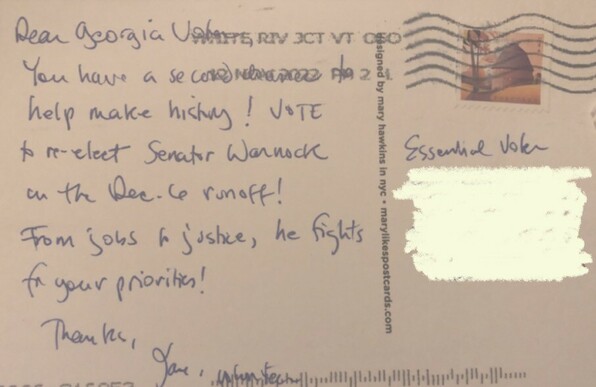 Dear Georgia Voter,
You have a second chance to
help make history! VOTE
to re-elect Senator Warnock
on the Dec. 6 runoff!
From jobs to justice, he fights
for your priorities!
Thanks,
Jane,
WHITE RIV JCT VT 050
2022 PM 2 L
designed by mary hawkins in nyc • marylikespostcards.com
Essential Voter